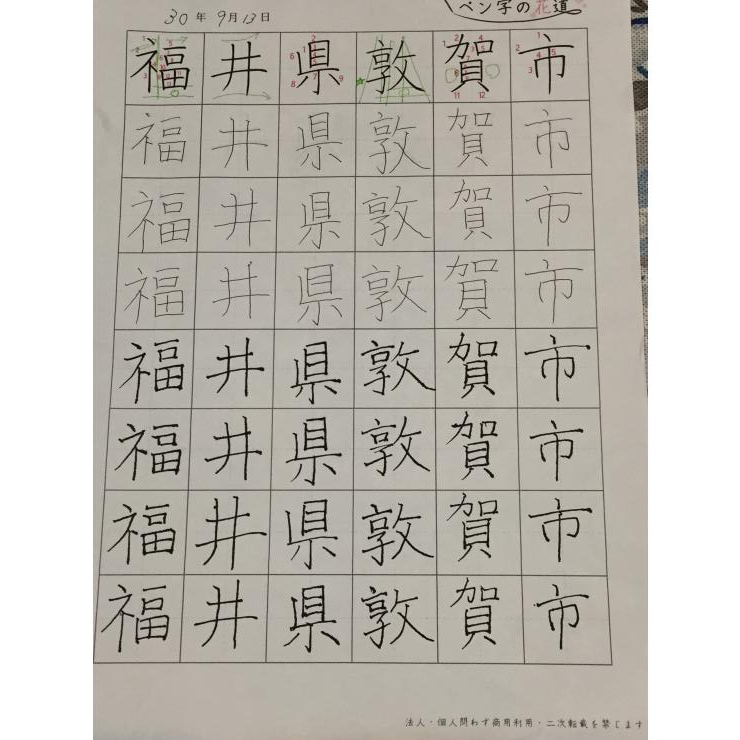 30年9月13日
ペン字の花道
福井県敦賀市
福井県敦賀市
福井県敦賀市
福井県敦賀市
福井県敦賀市
福井県敦賀市
福井県敦賀市
福井県敦賀市
法人・個人問わず商用利用・二次転載を禁じます